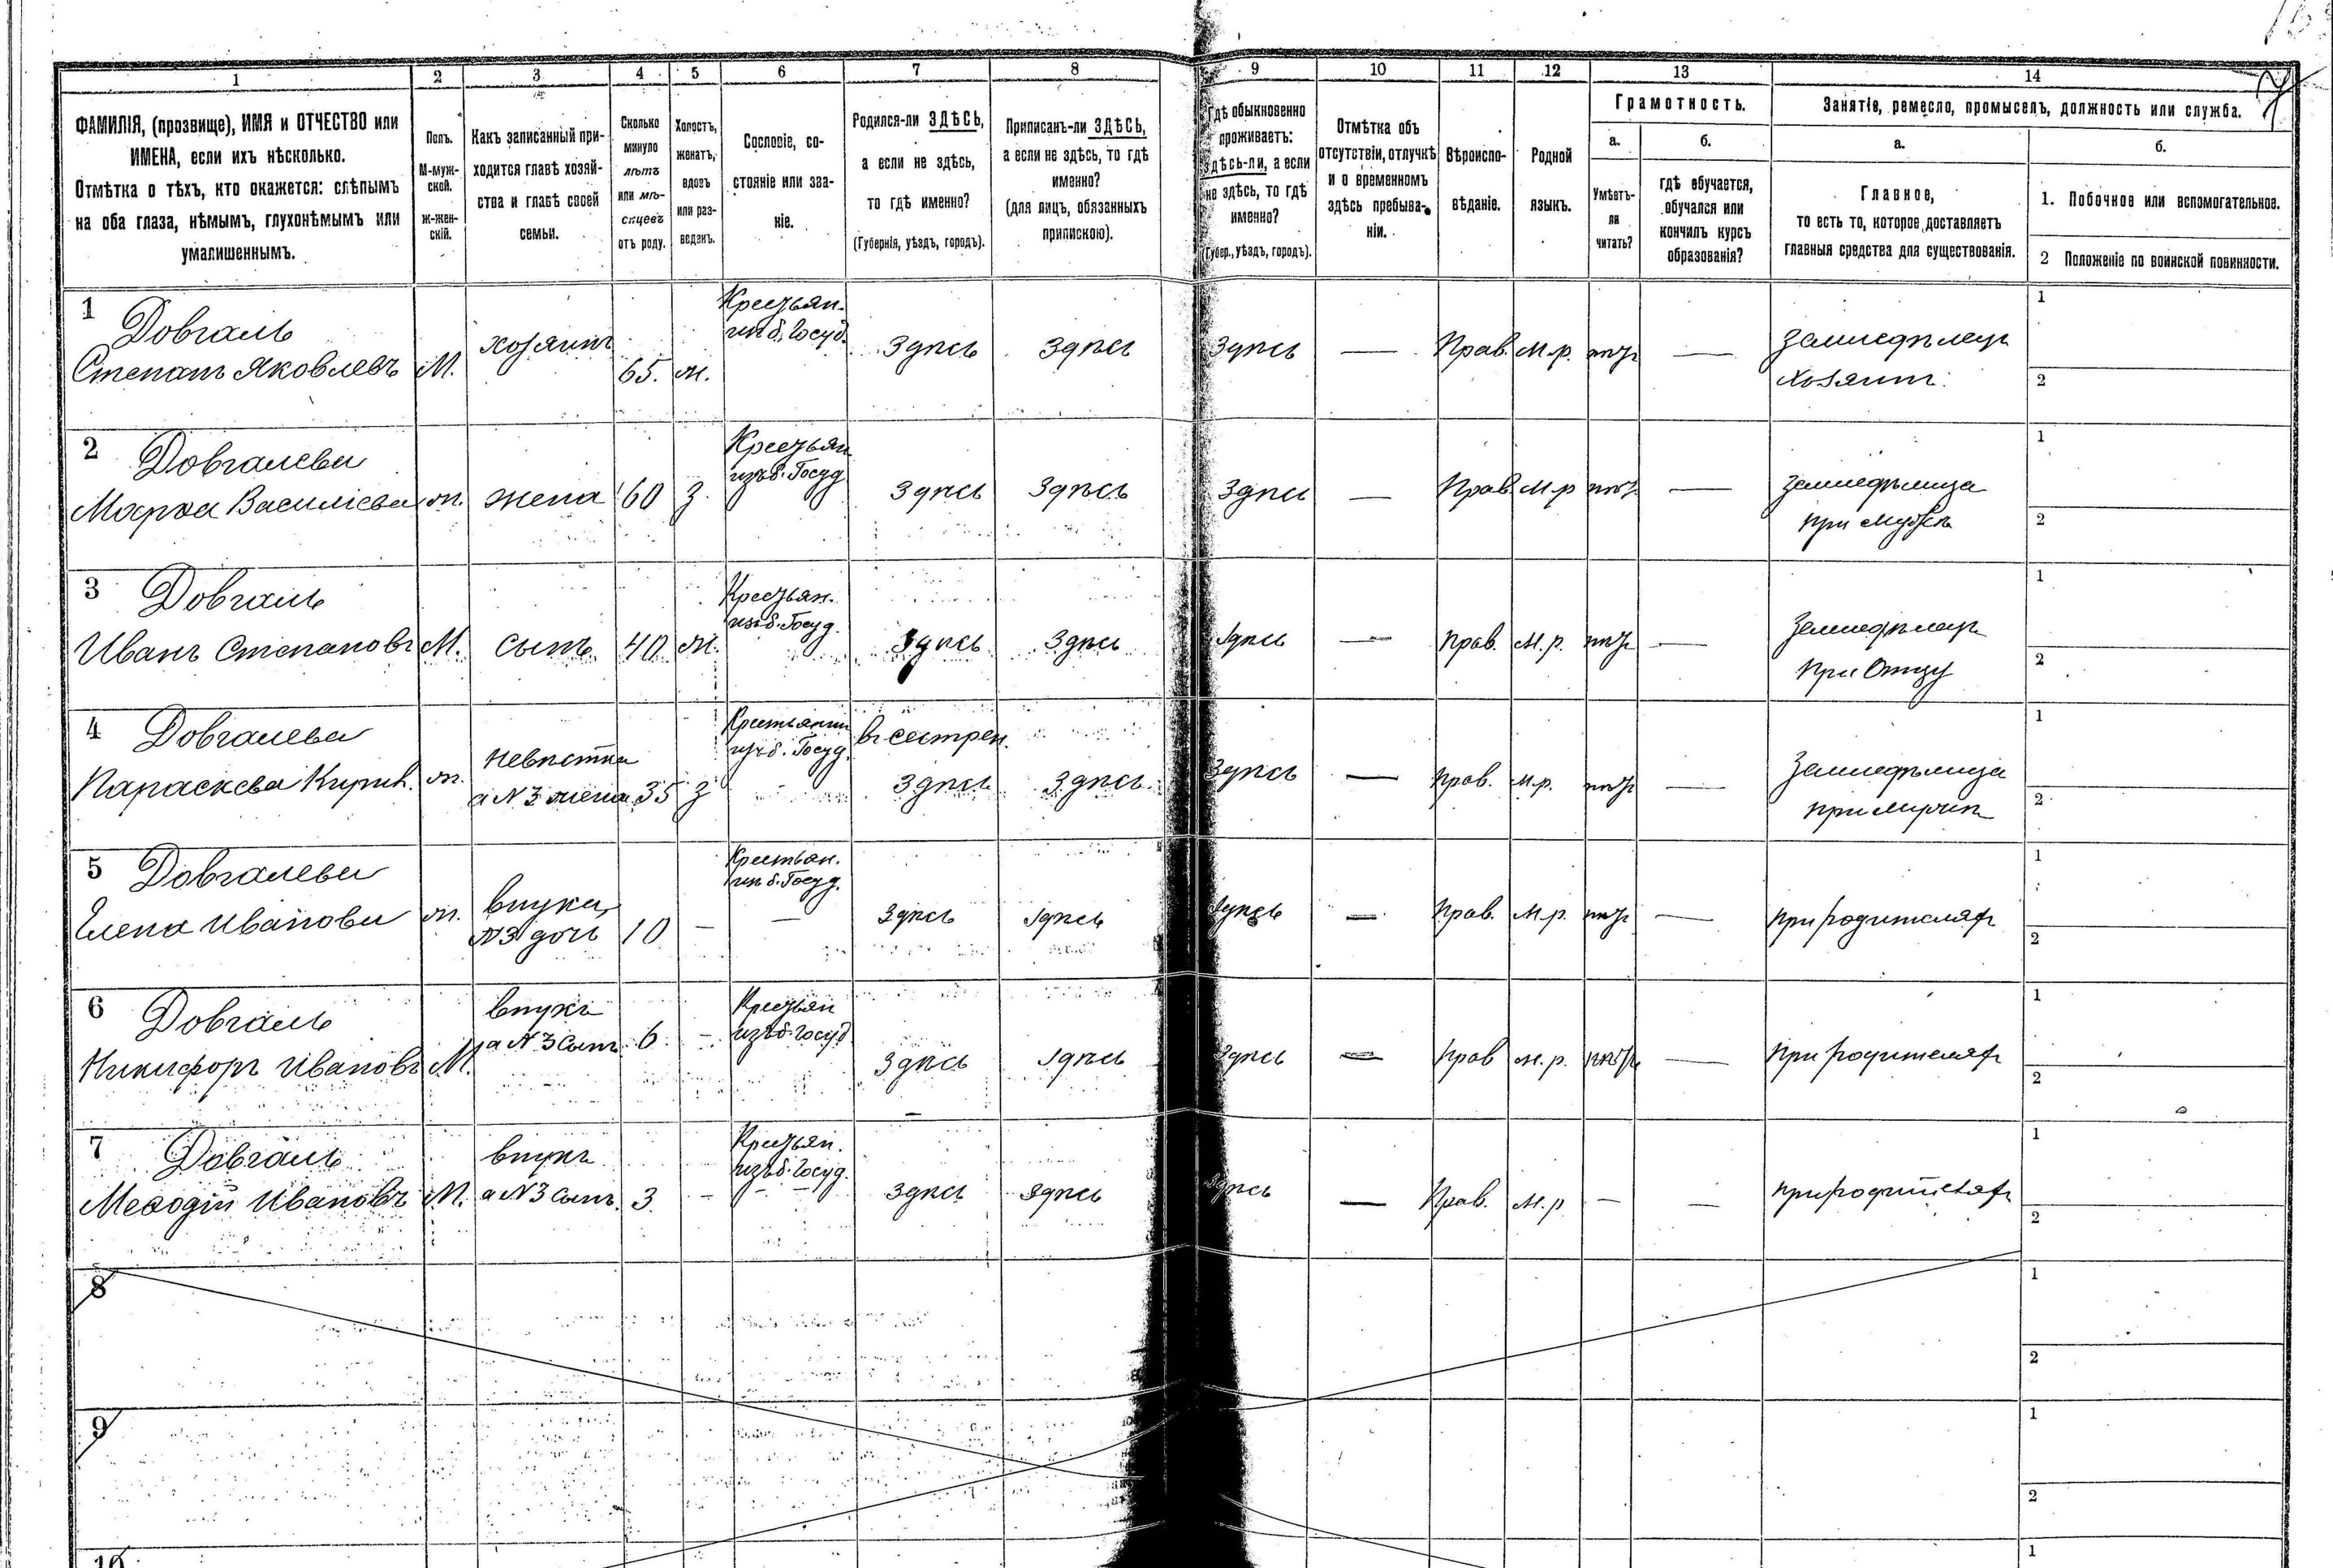 1 2 3 4 5 6 7 8 9 10 11 12 13 14
ФАМИЛІЯ, (прозвище), ИМЯ и ОТЧЕСТВО или
ИМЕНА, если ихъ нѣсколько.
Отмѣтка о тѣхъ, кто окажется: слѣпымъ
на оба глаза, нѣмымъ, глухонѣмымъ или
умалишеннымъ.
Полъ.
М-муж-
ской.
ж-жен-
скій.
Какъ записанный при-
ходится главѣ хозяй-
ства и главѣ своей
семьи.
Сколько
минуло
лѣтъ
или мѣ-
сяцевъ
отъ роду.
Холостъ,
женатъ,
вдовъ
или раз-
веденъ.
Сословіе, со-
стояніе или зва-
ніе.
Родился-ли ЗДѢСЬ,
а если не здѣсь,
то гдѣ именно?
(Губернія, уѣздъ, городъ).
Приписанъ-ли ЗДѢСЬ,
а если не здѣсь, то гдѣ
именно?
(для лицъ, обязанныхъ
припискою).
Гдѣ обыкновенно
проживаетъ:
здѣсь-ли, а если
не здѣсь, то гдѣ
именно?
(Губер., уѣздъ, городъ).
Отмѣтка объ
отсутствіи, отлучкѣ
и о временномъ
здѣсь пребыва-
ніи.
Вѣроиспо-
вѣданіе.
Родной
языкъ.
Грамотность.
а.
Умѣетъ-
ли
читать?
б.
гдѣ обучается,
обучался или
кончилъ курсъ
образованія?
Занятіе, ремесло, промыселъ, должность или служба.
а.
Главное,
то есть то, которое доставляетъ
главныя средства для существованія.
б.
1. Побочное или вспомогательное.
2 Положеніе по воинской повинности.
1 Довгаль
Степанъ Яковлевъ М. хозяинъ 65. ж.
Крестьян.
изъ б. Госуд.
здѣсь здѣсь здѣсь — Прав. М.р. нѣтъ —
Земледѣлецъ
хозяинъ
1
2
2 Довгалева
Марфа Василіева ж. жена 60 з.
Крестьян
изъ б. Госуд
здѣсь здѣсь здѣсь — Прав. М.р нѣтъ —
Земледѣлица
при мужѣ
1
2
3 Довгаль
Иванъ Степановъ М. сынъ 40 ж.
Крестьян.
изъ б. Госуд.
здѣсь здѣсь здѣсь — Прав. М.р. нѣтъ —
Земледѣлецъ
при Отцу
1
2
4 Довгалева
Параскева Кирил. ж.
невѣстка
а N3 жена 35 з
изъ б. Госуд.
здѣсь здѣсь здѣсь — Прав. М.р. нѣтъ —
Земледѣлица
при мужѣ
1
2
5 Довгалева
Елена Иванова ж.
внука,
N3 дочь 10 —
Крестьян.
изъ б. Госуд.
—
здѣсь здѣсь здѣсь — Прав. М.р. нѣтъ —
при родителяхъ
1
2
6 Довгаль
Никифоръ Ивановъ М.
внукъ
а N3 сынъ 6. —
Крестьян
изъ б. Госуд
здѣсь здѣсь здѣсь — Прав М.р. нѣтъ —
при родителяхъ
1
2
7 Довгаль
Меѳодій Ивановъ М.
внукъ
а N3 сынъ. 3. —
Крестьян.
изъ б. Госуд.
здѣсь здѣсь здѣсь — Прав. М.р — —
при родителяхъ
1
2
8
1
2
9
1
2
10
1